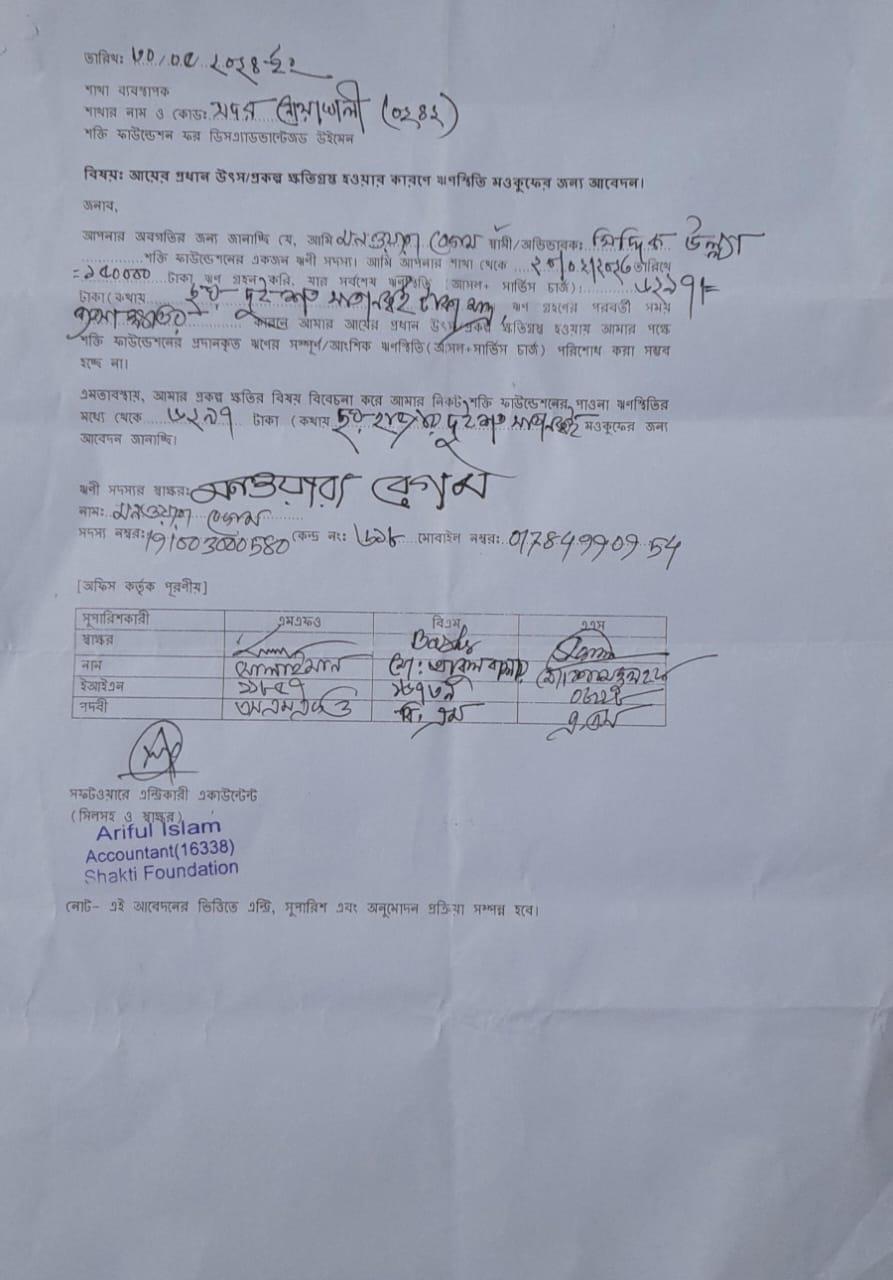 তারিখ: ৩০/০৫ ২০২৪ ইং
শাখা ব্যবস্থাপক
শাখার নাম ও কোড: সদর নোয়াখালী (০২৪২)
শক্তি ফাউন্ডেশন ফর ডিসএ্যাডভান্টেজড উইমেন
বিষয়: আয়ের প্রধান উৎস/প্রকল্প ক্ষতিগ্রস্ত হওয়ার কারণে ঋণস্থিতি মওকুফের জন্য আবেদন।
জনাব,
আপনার অবগতির জন্য জানাচ্ছি যে, আমি মনওয়ারা বেগম স্বামী/অভিভাবক: ছিদ্দিক উল্ল্যা
শক্তি ফাউন্ডেশনের একজন ঋণী সদস্য। আমি আপনার শাখা থেকে তারিখে
টাকা ঋণ গ্রহন করি, যার সর্বশেষ ঋণস্থিতি (আসল+ সার্ভিস চার্জ) ৬২৯৭/=
টাকা(কথায় দুইশত সাতানব্বই টাকা মাত্র ঋণ গ্রহণের পরবর্তী সময়
কারনে আমার আয়ের প্রধান উৎস/প্রকল্প ক্ষতিগ্রস্ত হওয়ায় আমার পক্ষে
শক্তি ফাউন্ডেশনের প্রদানকৃত ঋণের সম্পূর্ণ/আংশিক ঋণস্থিতি(আসল+সার্ভিস চার্জ) পরিশোধ করা সম্ভব
হচ্ছে না।
এমতাবস্থায়, আমার প্রকল্প ক্ষতির বিষয় বিবেচনা করে আমার নিকট শক্তি ফাউন্ডেশনের পাওনা ঋণস্থিতির
মধ্যে থেকে ৬২৯৭ টাকা (কথায় ছয় হাজার দুইশত সাতানব্বই মওকুফের জন্য
আবেদন জানাচ্ছি।
ঋণী সদস্যর স্বাক্ষর: মনওয়ারা বেগম
নাম: মনওয়ারা বেগম
সদস্য নম্বর: কেন্দ্র নং: মোবাইল নম্বর:
[অফিস কর্তৃক পূরণীয়]
সুপারিশকারী এমএফও বিএম এএম
স্বাক্ষর
নাম সোলাইমান
ইআইএন
পদবী বি, এম এ, এম
সফটওয়ারে এন্ট্রিকারী একাউন্টেন্ট
(সিলসহ ও স্বাক্ষর)
Ariful Islam
Accountant(16338)
Shakti Foundation
নোট- এই আবেদনের ভিত্তিতে এন্ট্রি, সুপারিশ এবং অনুমোদন প্রক্রিয়া সম্পন্ন হবে।